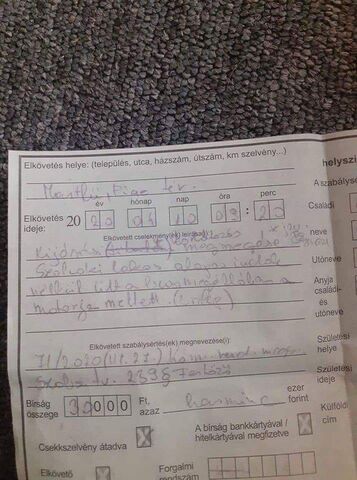 Elkövetés helye: (település, utca, házszám, útszám, km szelvény...)
Martfű, Piac tér.
év hónap nap óra perc
Elkövetés ideje: 20 20 04 10 09 : 20
Elkövetett cselekmény(ek) leírása:
Kijárási korlátozás megszegése
Szolnoki lakos alapos indok
nélkül ült a
motorja mellett.
Elkövetett szabálysértés(ek) megnevezése(i)
71/2020 (III. 27.) Korm. rend.
Szabs. tv. 239§
Bírság összege 30000 Ft, azaz harminc ezer forint
Csekkszelvény átadva
A bírság bankkártyával / hitelkártyával megfizetve
Elkövető
Forgalmi rendszám
helyszí
A szabálysé
Családi
neve
Utóneve
Anyja családi- és utóneve
Születési helye
Születési ideje
Külföldi cím